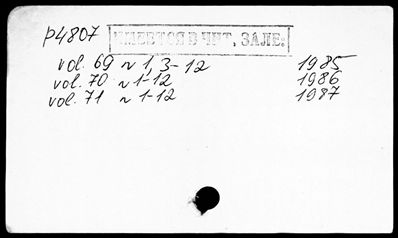 p4807 ИМЕЕТСЯ В ЧИТ. ЗАЛЕ:
vol. 69 N 1, 3-12 1985
vol. 70 N 1-12 1986
vol. 71 N 1-12 1987